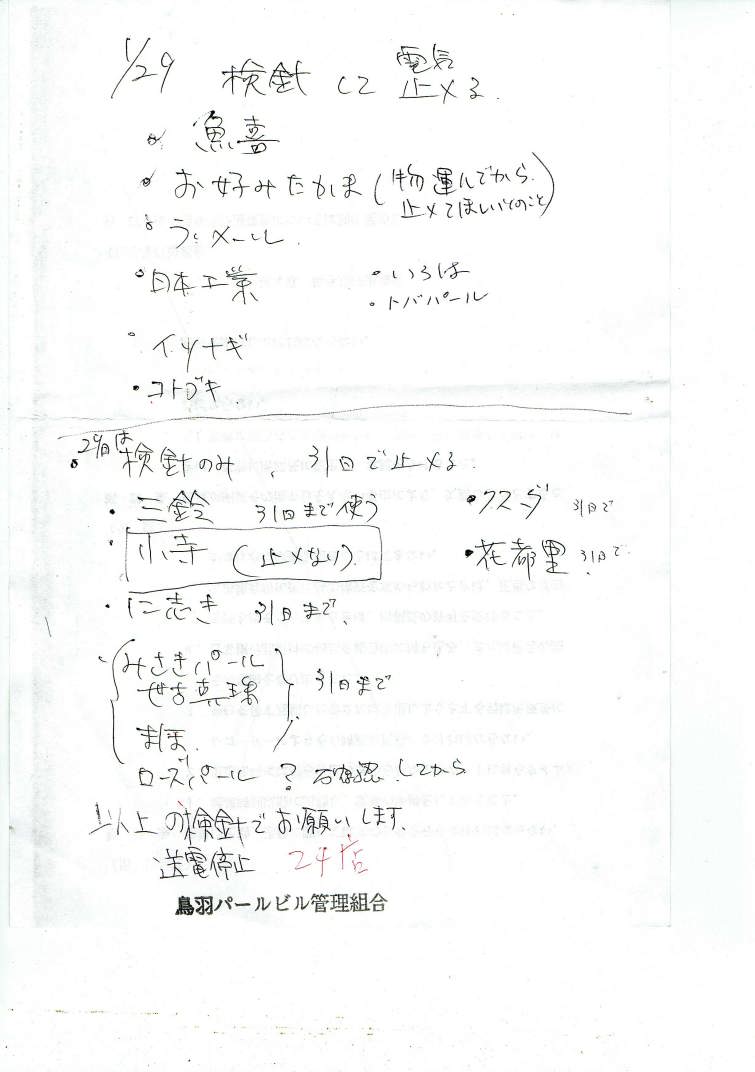 1/29 検針して 電気止メる.
魚喜
お好みたかま(物運んでから.
止メてほしいとのこと)
ラメール.
日本工業
・いろは
・トバパール
イツナギ
・コトブキ
29日は
検針のみ、31日で止メる.
・三鈴 31日まで使う
・クスダ 31日で
・小寺 (止メない).
・花都里 31日で.
・仁志き 31日まで、
みさきパール
ぜ古真珠 31日まで
まほ.
ローズパール ? 確認してから
以上の検針でお願いします、
送電停止 24店
鳥羽パールビル管理組合